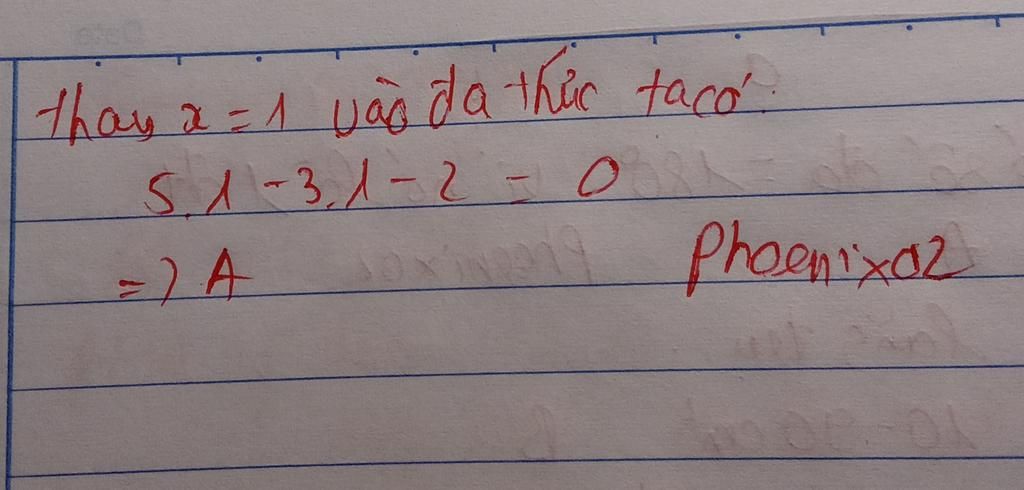 thay x = 1 vào đa thức ta có:
5.1 - 3.1 - 2 = 0
=> A
Phoenix02